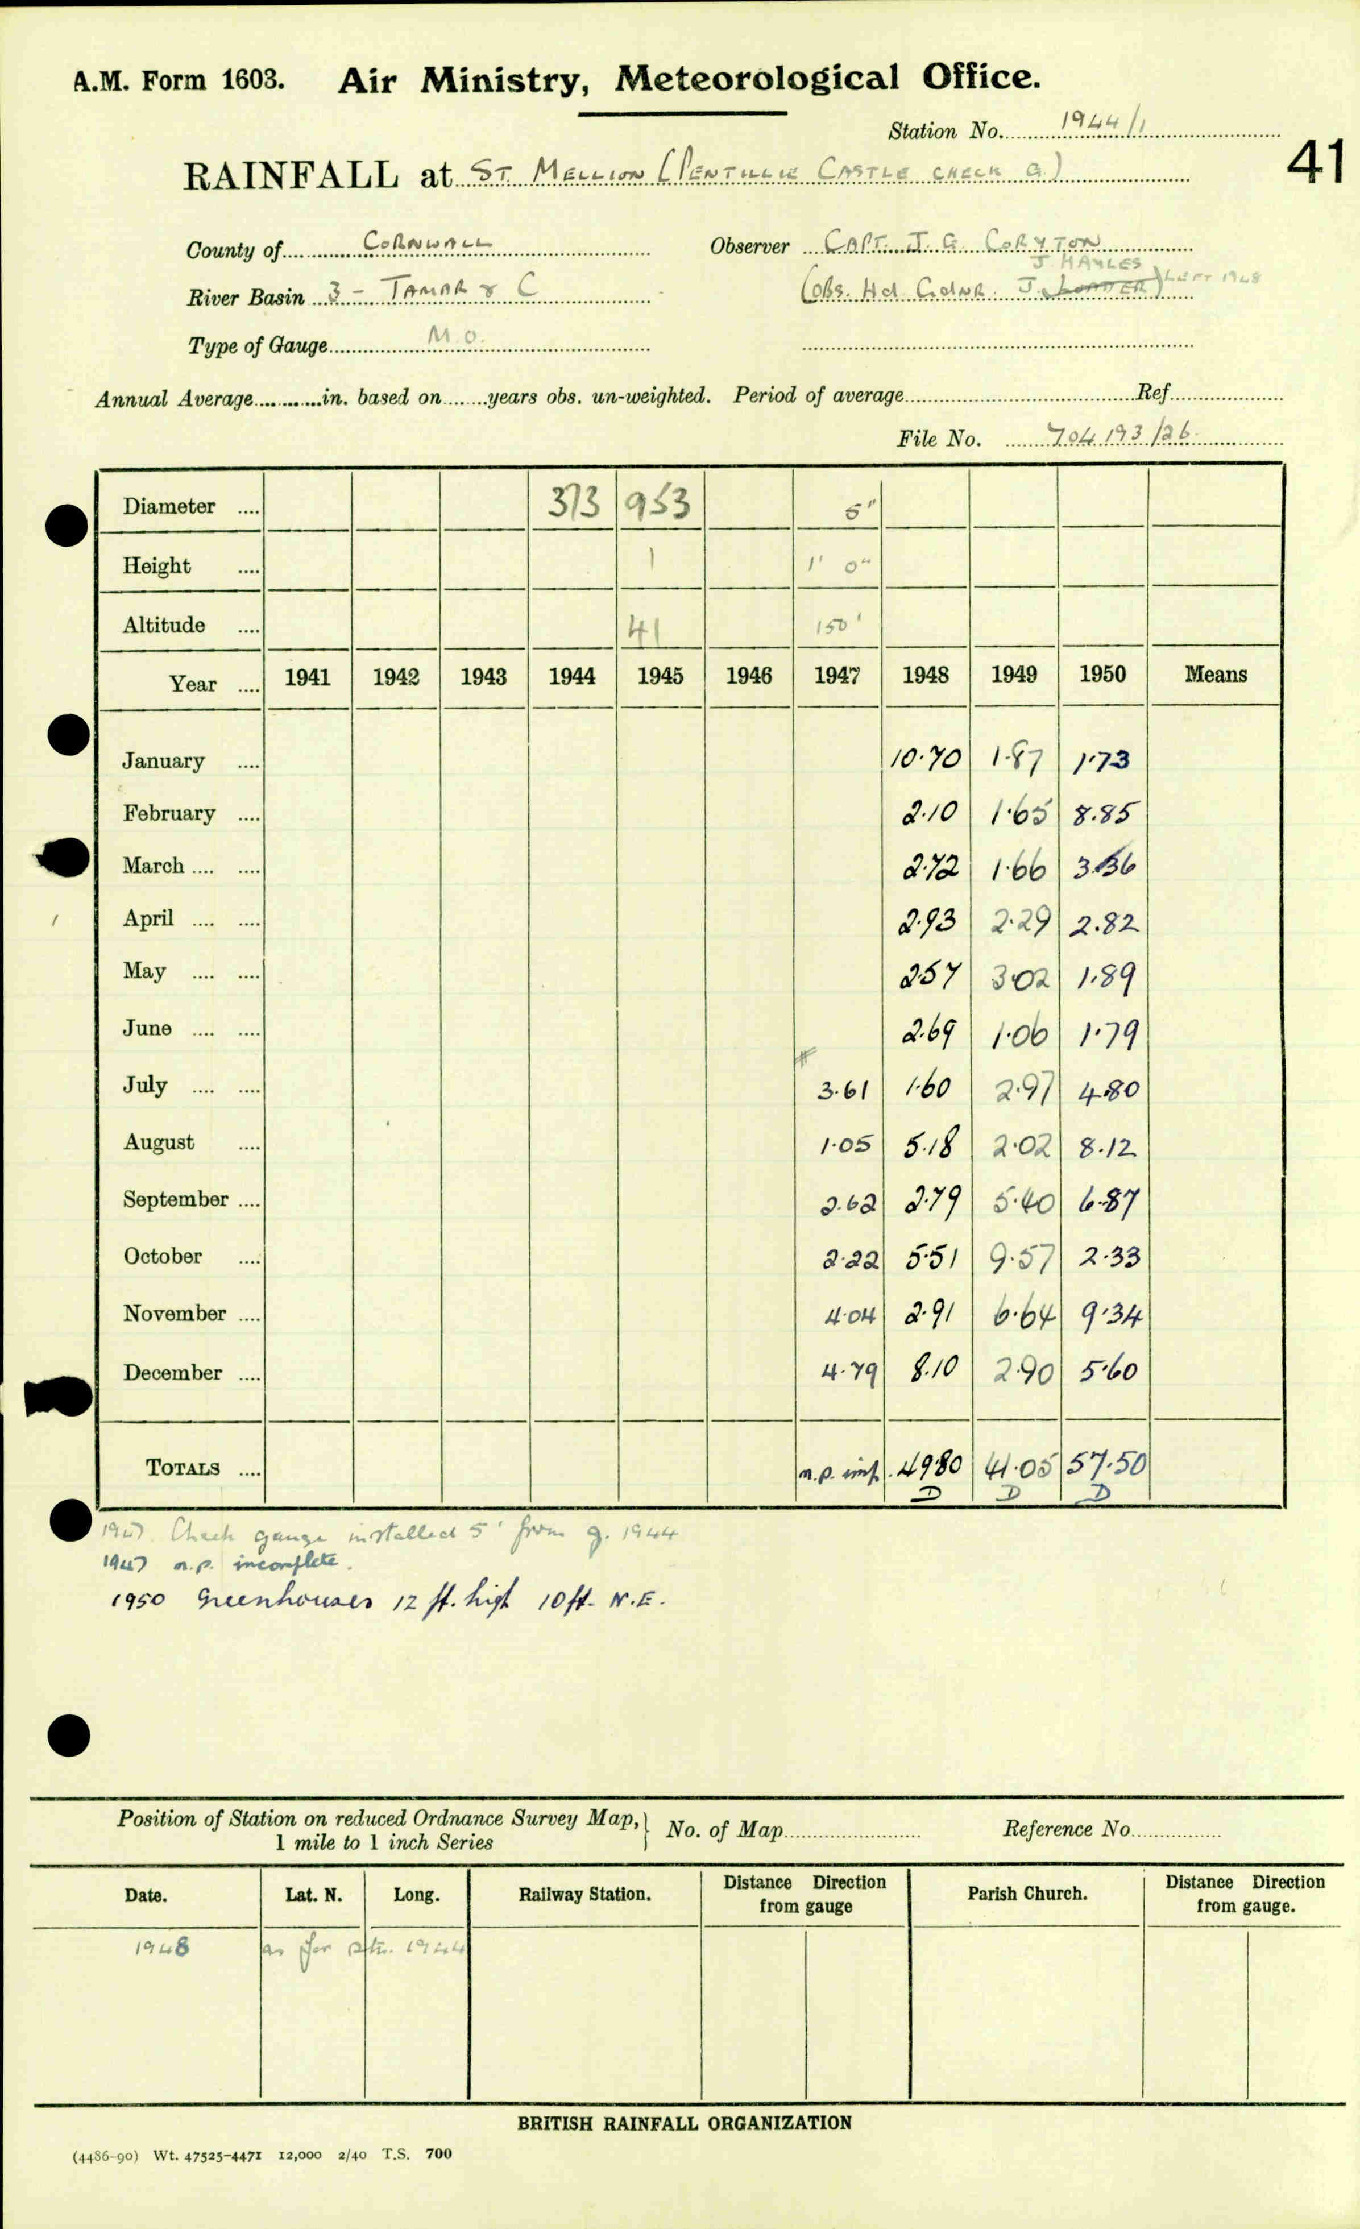 A.M. Form 1603. Air Ministry, Meteorological Office.
Station No. 1944/1
41
RAINFALL at ST. MELLION (PENTILLIE CASTLE CHECK G.)
County of CORNWALL Observer CAPT. J. G. CORYTON
J. HAYLES
River Basin 3 - TAMAR & C (OBS. Hd GdNR. J. LOADER) LEFT 1948
Type of Gauge M.O.
Annual Average in. based on years obs. un-weighted. Period of average Ref
File No. 704193/26.
Diameter 373 953 5"
Height 1 1' 0"
Altitude 41 150'
Year 1941 1942 1943 1944 1945 1946 1947 1948 1949 1950 Means
January 10.70 1.87 1.73
February 2.10 1.65 8.85
March 2.72 1.66 3.36
April 2.93 2.29 2.82
May 2.57 3.02 1.89
June 2.69 1.06 1.79
#
July 3.61 1.60 2.97 4.80
August 1.05 5.18 2.02 8.12
September 2.62 2.79 5.40 6.87
October 2.22 5.51 9.57 2.33
November 4.04 2.91 6.64 9.34
December 4.79 8.10 2.90 5.60
TOTALS n.p. imp. 49.80 41.05 57.50
D D D
1947 Check gauge installed 5' from g. 1944
1947 n.p. incomplete.
1950 Greenhouses 12 ft. high 10 ft. N.E.
Position of Station on reduced Ordnance Survey Map, 1 mile to 1 inch Series } No. of Map Reference No.
Date. Lat. N. Long. Railway Station. Distance Direction from gauge Parish Church. Distance Direction from gauge.
1948 as for stn. 1944
BRITISH RAINFALL ORGANIZATION
(4486-90) Wt. 47525-4471 12,000 2/40 T.S. 700